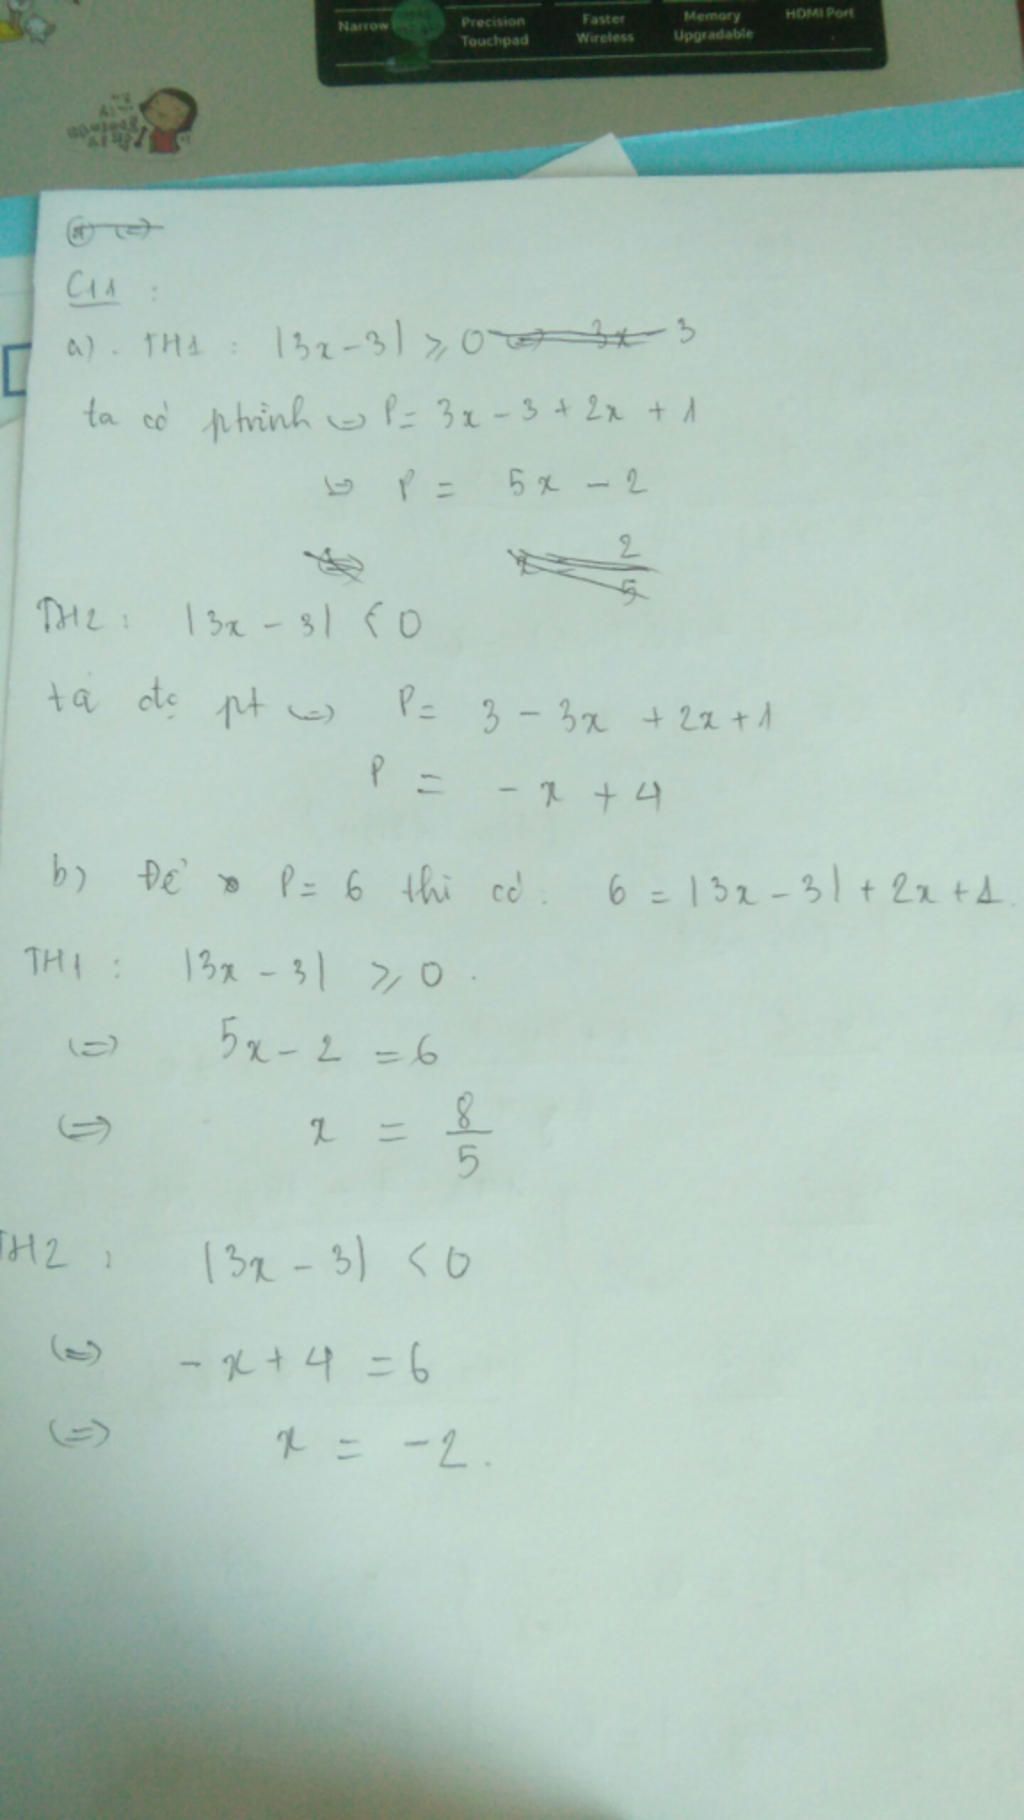 Narrow
Precision Touchpad
Faster Wireless
Memory Upgradable
HDMI Port
C11 :
a). TH1 : |3x-3| ≥ 0 ⇔ 3x 3
ta có ptrình ⇔ P = 3x - 3 + 2x + 1
⇔ P = 5x - 2
x = 2/5
TH2 : |3x - 3| < 0
ta đc pt ⇔ P = 3 - 3x + 2x + 1
P = - x + 4
b) Để P = 6 thì có : 6 = |3x - 3| + 2x + 1.
TH1 : |3x - 3| ≥ 0 .
⇔ 5x - 2 = 6
⇔ x = 8/5
TH2 : |3x - 3| < 0
⇔ - x + 4 = 6
⇔ x = -2.